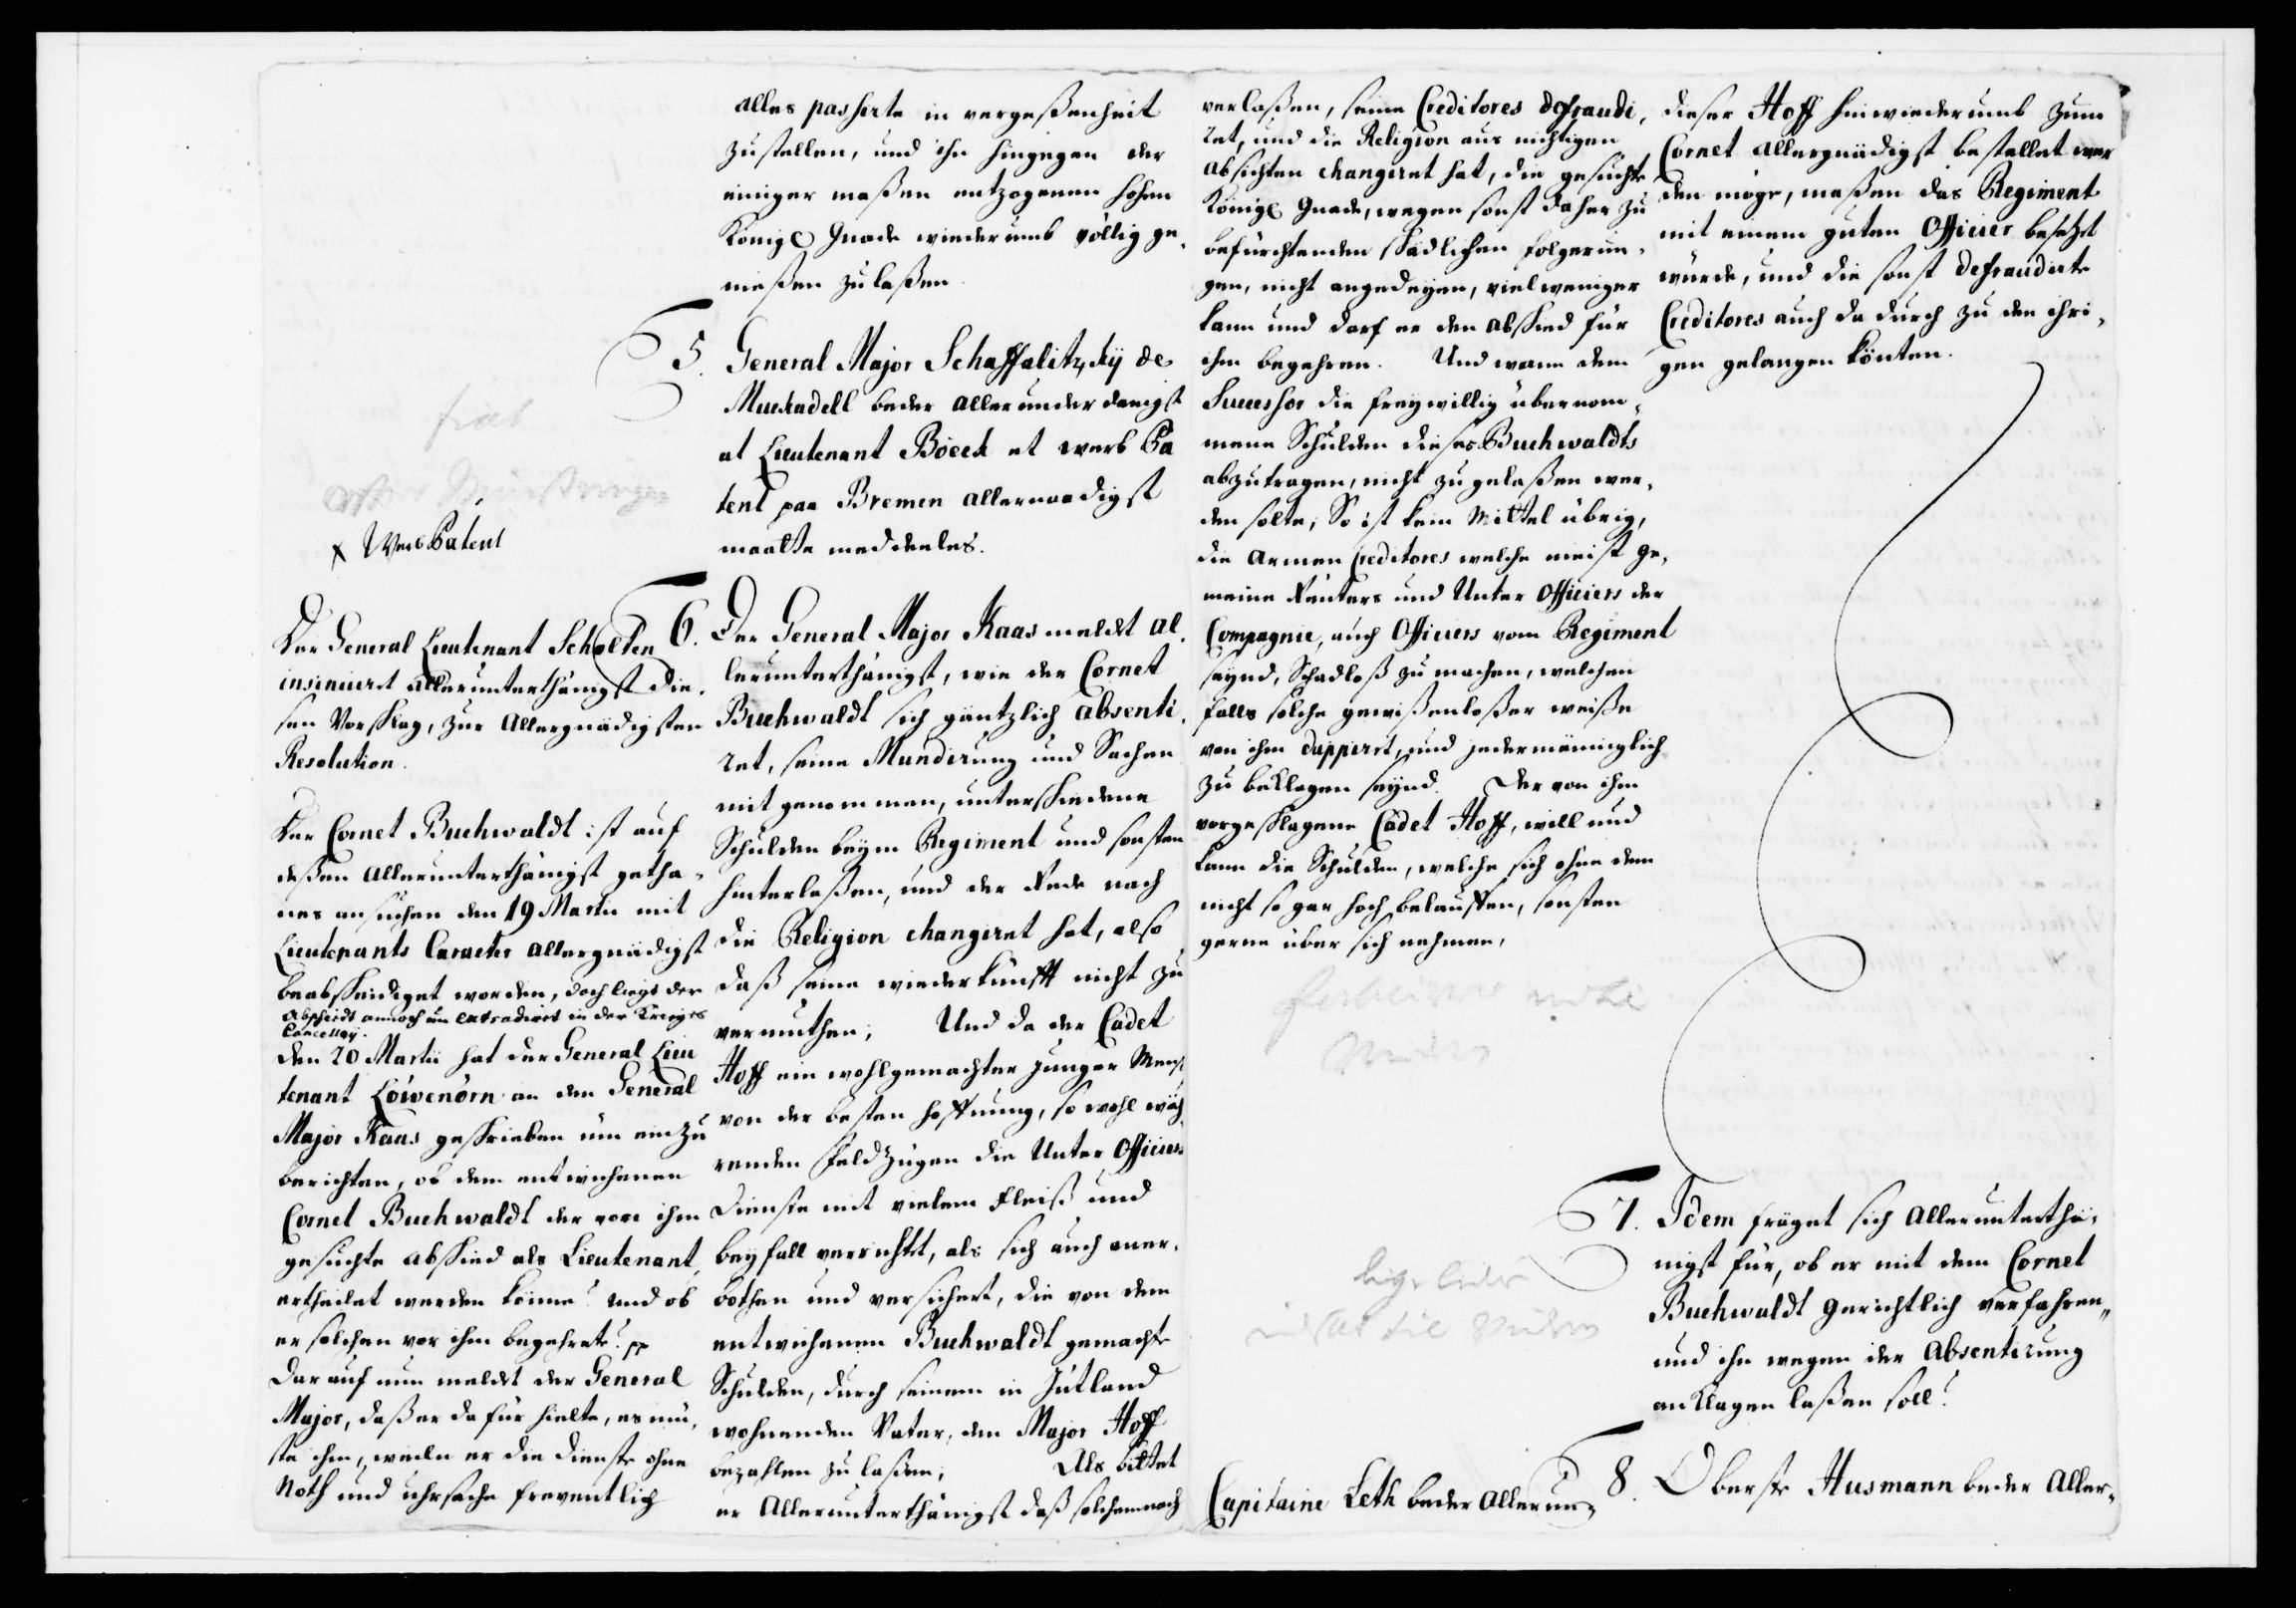 alles passirte in vergeßenheit
zustellen, und ihn hingegen der
einiger maßen entzogenen hohen
Königl Gnade wiederumb völlig ge-
nießen zu laßen.
5. General Major Schaffalitzkij de
Muckadell beder allerunderdanigst
at Lieutenant Böeck et werb Pa
tent paa Bremen allernaadigst
maatte meddeeles.
fiat
x Werb Patent
6. Der General Major Kaas meldet al-
lerunterthänigst, wie der Cornet
Buchwaldt sich gäntzlich absenti-
ret, seine Mundirung und Sachen
mit genommen, unterschiedene
Schulden beym Regiment und sonsten
hinterlaßen, und der Rede nach
die Religion changiret hat, also
daß seine wiederkunfft nicht zu
vermuthen; Und da der Cadet
Hoff ein wohlgemachter junger Mensch
von der besten hoffnung, so wohl wäh
renden Feldzügen die Unter Officiers
Dienste mit vielem Fleiß und
beyfall verrichtet, als sich auch aner-
bothen und versichert, die von dem
entwichenen Buchwaldt gemachte
Schulden, durch seinem in Jütland
wohnenden Vater, den Major Hoff
bezahlen zu laßen; Als bittet
er Allerunterthänigst daß solchemnach
Der General Lieutenant Scholten
insinuirt allerunterthänigst die-
sen Vorschlag, zur Allergnädigsten
Resolution.
Der Cornet Buchwaldt ist auf
deßen allerunterthänigst getha-
nes ansuchen den 19 Martii mit
Lieutenants Caracter allergnädigst
beabscheidiget worden, doch liegt der
Abscheidt annoch un extradirt in der Kriegs
Cancelley.
Den 20 Martii hat der General Lieu
tenant Löwenörn an den General
Major Kaas geschrieben um einzu
berichten, ob dem entwichenen
Cornet Buchwaldt der von ihm
gesuchte abschied als Lieutenant,
ertheilet werden könne? und ob
er solchen vor ihm begehrete? pp
Darauf nun meldet der General
Major, daß er dafür hielte, es mü-
ste ihm, weilen er die Dienste ohne
Noth und uhrsache freventlich
verlaßen, seine Creditores defraudi-
ret, und die Religion aus nichtigen
absichten changiret hat, die gesuchte
Königl Gnade, wegen sonst daher zu
befürchtenden schädlichen folgerun-
gen, nicht angedeyen, vielweniger
kann und darf er den abschied für
ihm begehren. Und wann dem
Successor die freywillig übernom-
mene Schulden dieses Buchwaldts
abzutragen, nicht zugelaßen wer-
den solte, So ist kein Mittel übrig,
die armen Creditores welche meist ge-
meine Reuters und Unter Officiers der
Compagnie, auch Officiers vom Regiment
seynd, Schadloß zu machen, welchen
falls solche gewißenloßer weiße
von ihm duppirt, und jedermänniglich
zu beklagen seynd. Der von ihm
vorgeschlagene Cadet Hoff, will und
kann die Schulden, welche sich ohne dem
nicht so gar hoch belauffen, sonsten
gerne über sich nehmen,
dieser Hoff hinwiederumb zum
Cornet allergnädigst bestellet wer
den möge, maßen das Regiment
mit einem guten Officier besetzet
würde, und die sonst defraudirte
Creditores auch dadurch zu den ihri-
gen gelangen könten.
7. Idem fräget sich Allerunterthä-
nigst für, ob er mit dem Cornet
Buchwaldt gerichtlich verfahren,
und ihn wegen der Absentirung
anklagen laßen soll?
8. Oberste Husmann beder Aller-
Capitaine Leth beder Allerun-